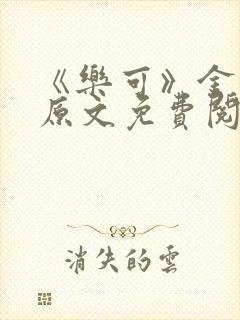 《樂可》金
原文免費閱
消失的雲